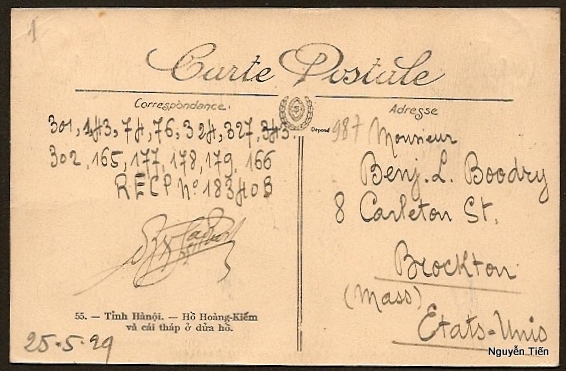 1
Carte Postale
Correspondance.
Adresse
301, 143, 74, 76, 324, 327, 343
302, 165, 177, 178, 179, 166
RECP Nº 18340B
55. — Tỉnh Hànội. — Hồ Hoàng-Kiếm
và cái tháp ở dửa hồ.
25-5-29
Déposé
987
Monsieur
Benj. L. Boodry
8 Carleton St.
Brockton
(Mass)
Etats-Unis
Nguyễn Tiến